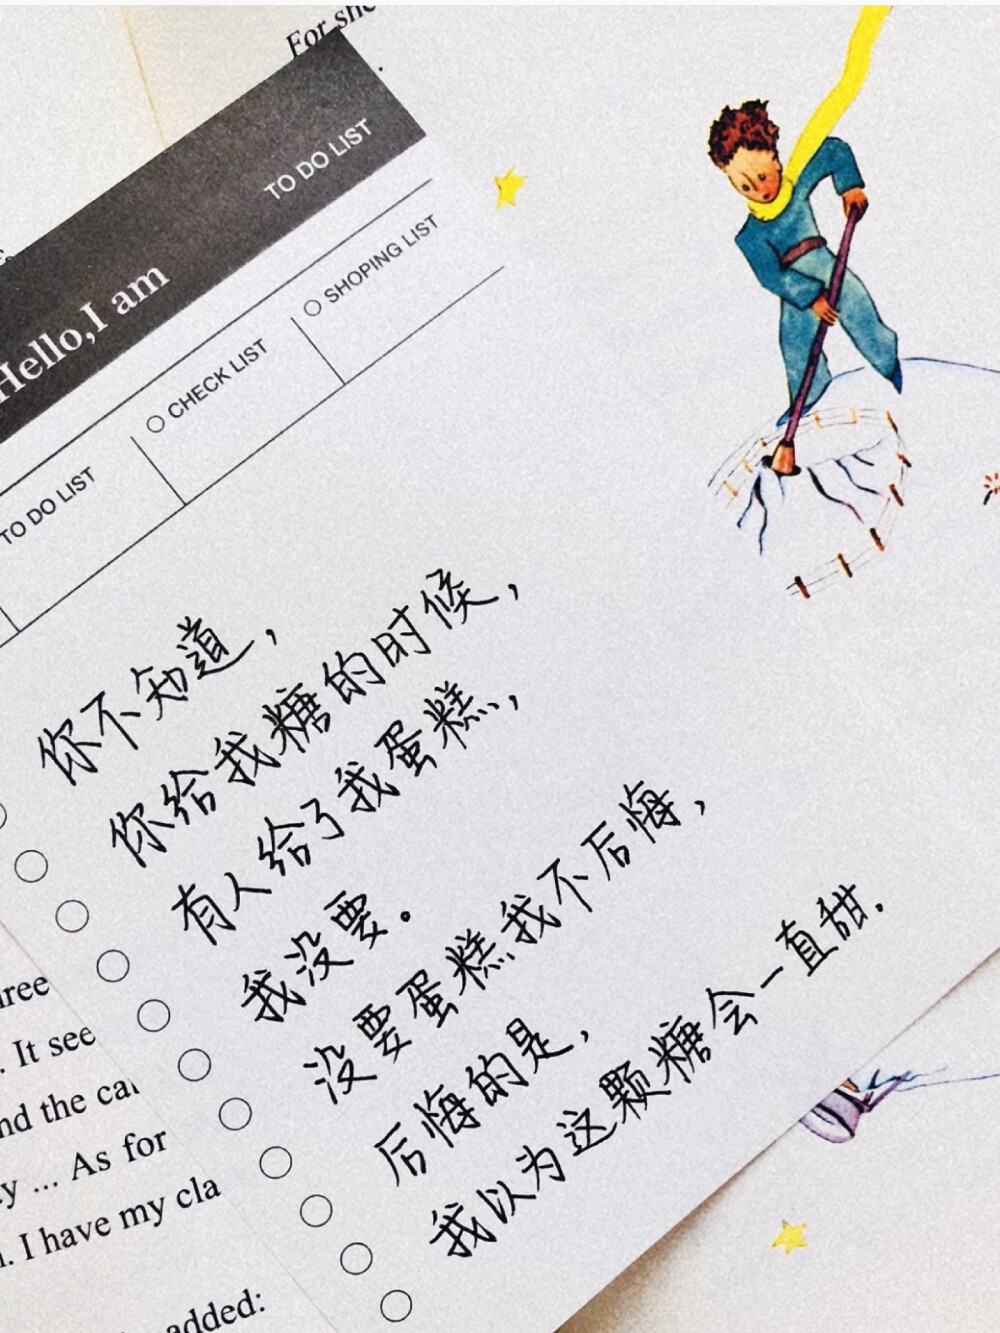 For she
TO DO LIST
Hello,I am
SHOPING LIST
CHECK LIST
TO DO LIST
你不知道,
你给我糖的时候,
有人给了我蛋糕,
我没要。
没要蛋糕我不后悔,
后悔的是,
我以为这颗糖会一直甜.
It see
nd the
... As for
I have my cla
added: